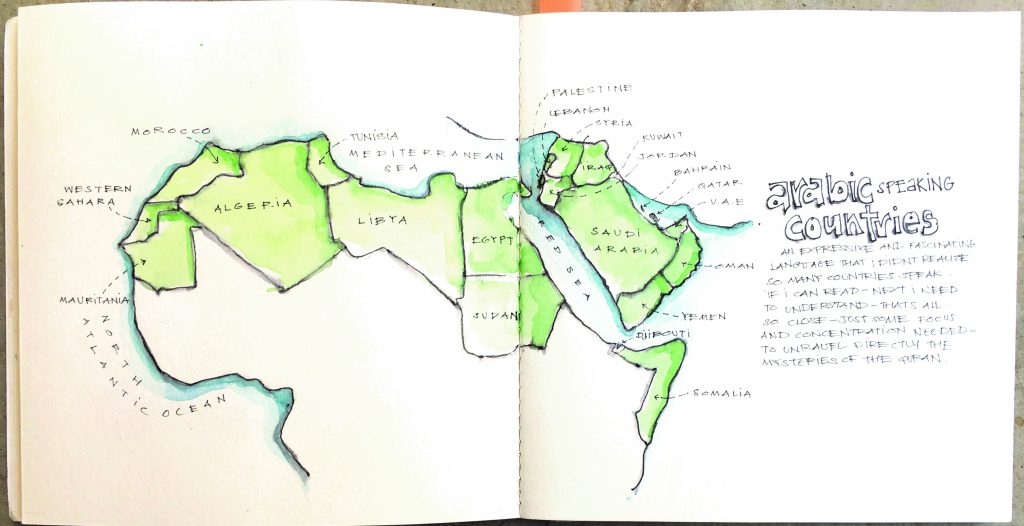 MOROCCO
TUNISIA
MEDITERRANEAN
SEA
WESTERN
SAHARA
ALGERIA
LIBYA
EGYPT
SUDAN
MAURITANIA
NORTH
ATLANTIC OCEAN
PALESTINE
LEBANON
SYRIA
KUWAIT
IRAQ
JORDAN
BAHRAIN
QATAR
U.A.E
SAUDI
ARABIA
RED SEA
OMAN
YEMEN
DJIBOUTI
SOMALIA
arabic SPEAKING
countries
AN EXPRESSIVE AND FASCINATING
LANGUAGE THAT I DIDNT REALISE
SO MANY COUNTRIES SPEAK.
IF I CAN READ - NEXT I NEED
TO UNDERSTAND - THATS ALL.
SO CLOSE - JUST SOME FOCUS
AND CONCENTRATION NEEDED -
TO UNRAVEL DIRECTLY THE
MYSTERIES OF THE QURAN.